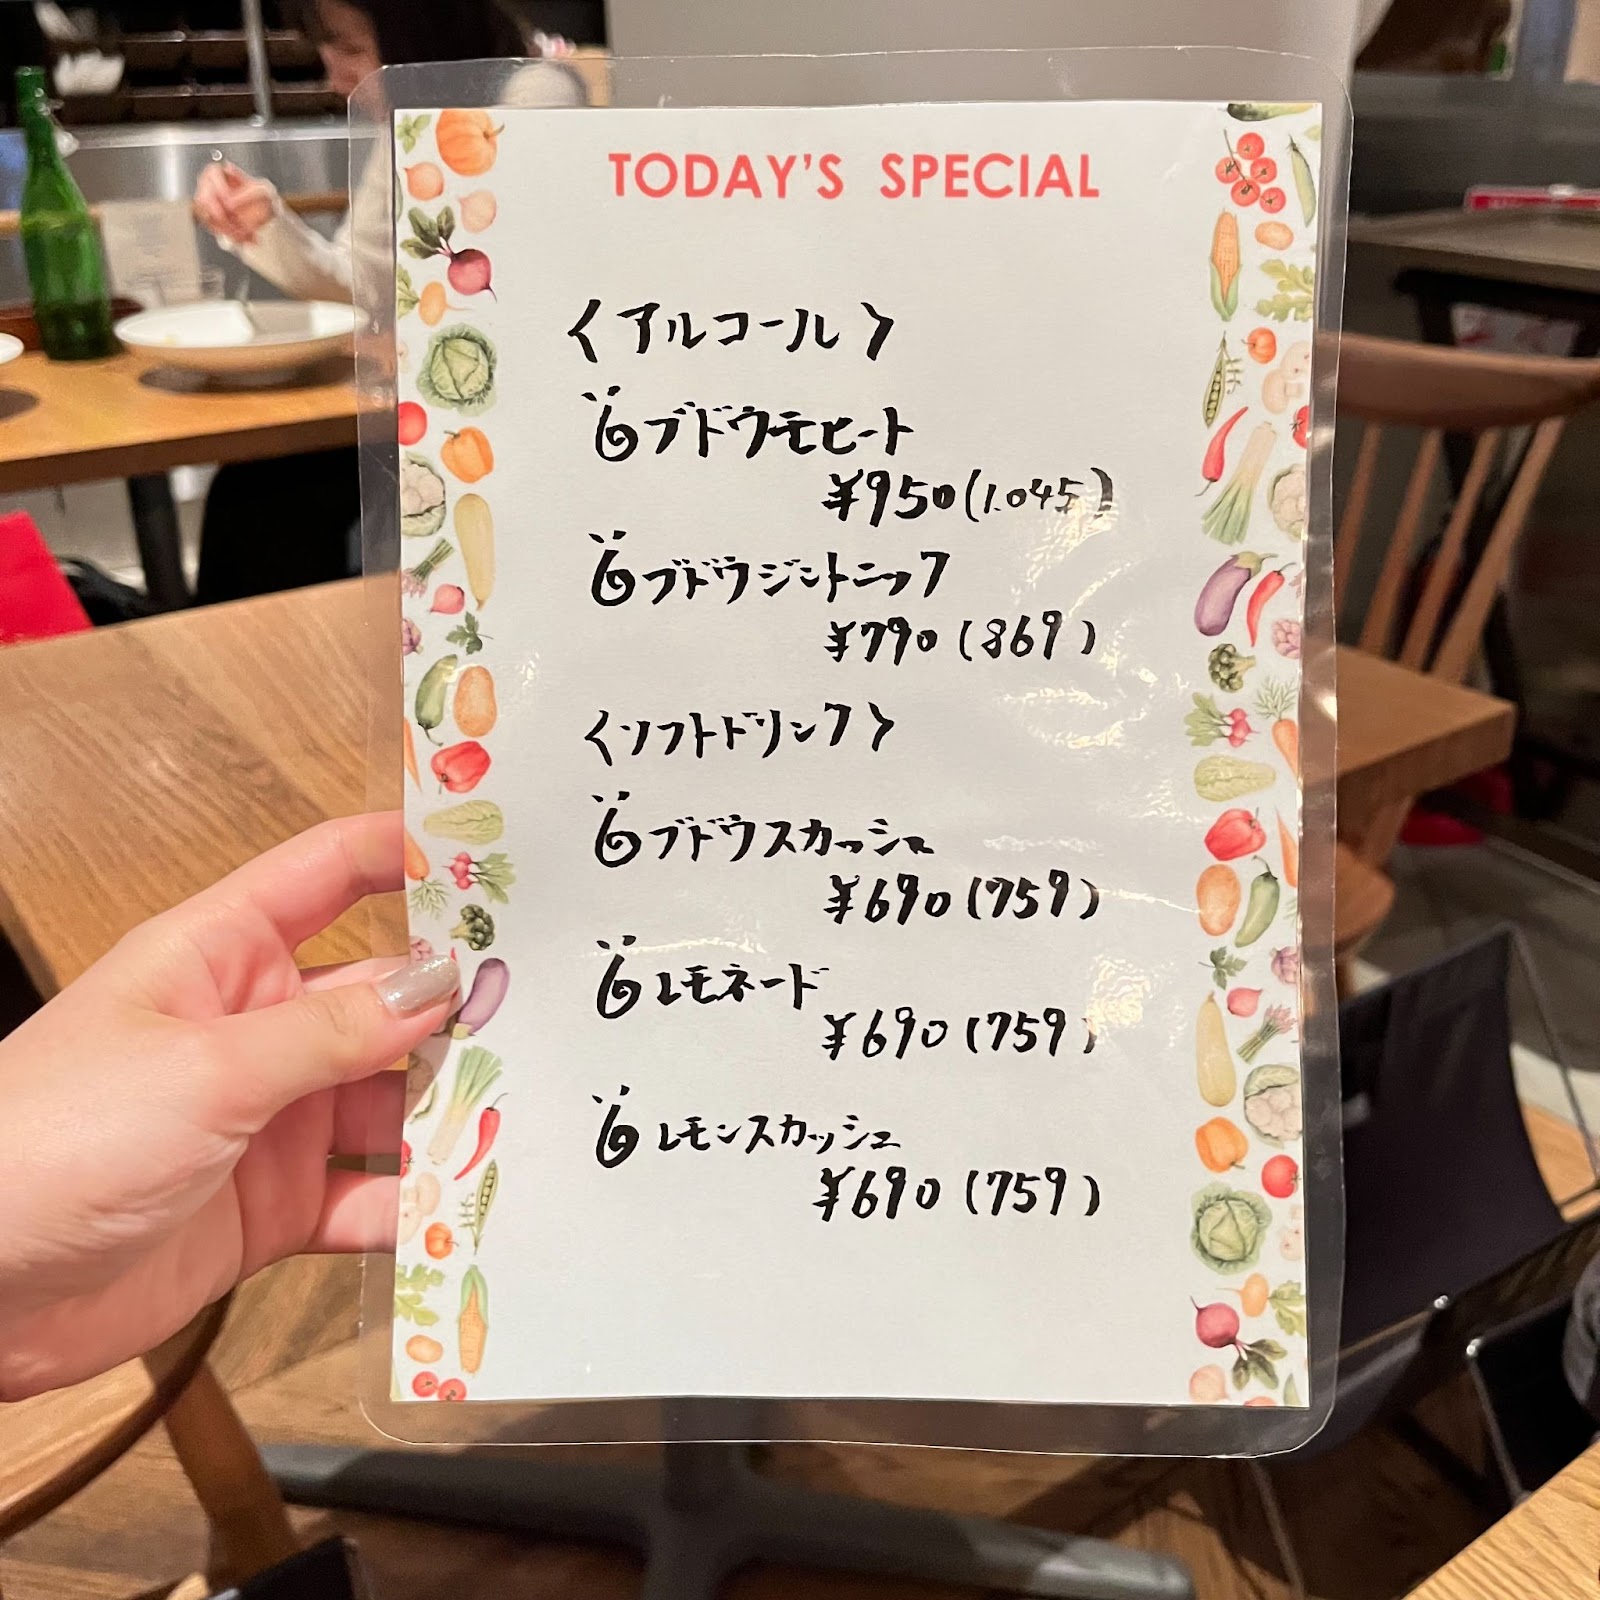 TODAY'S SPECIAL
〈アルコール〉
ブドウモヒート
¥950(1.045)
ブドウジントニック
¥790(869)
〈ソフトドリンク〉
ブドウスカッシュ
¥690(759)
レモネード
¥690(759)
レモンスカッシュ
¥690(759)